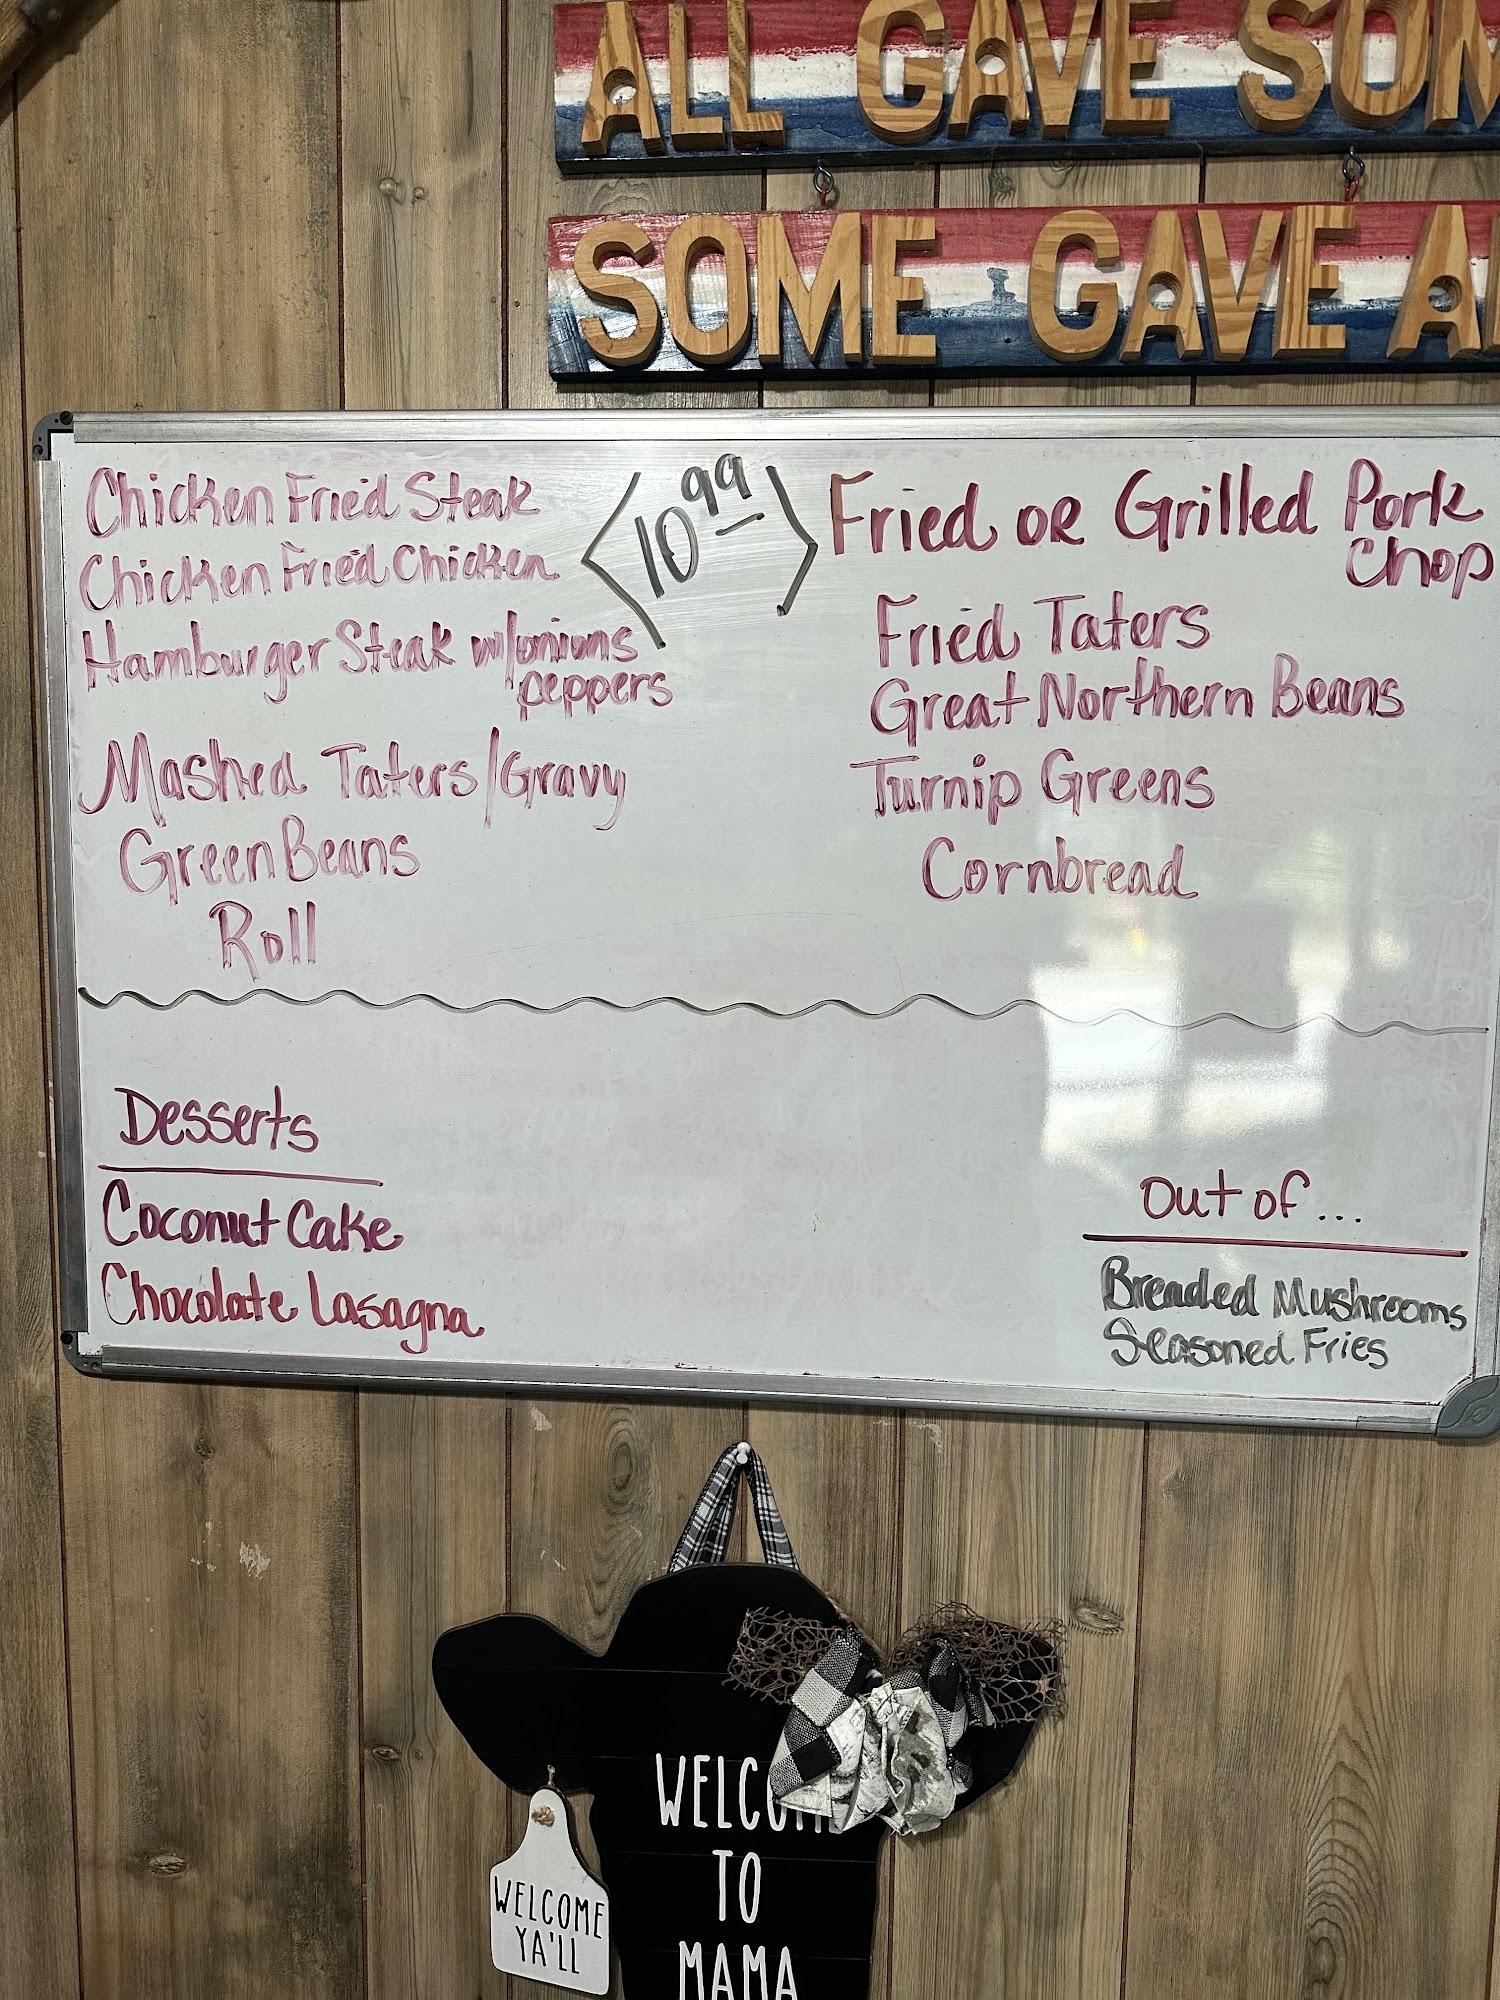 ALL GAVE SOM
SOME GAVE A
Chicken Fried Steak
Chicken Fried Chicken
Hamburger Steak w/onions
peppers
Mashed Taters/Gravy
Green Beans
Roll
<10.99>
Fried or Grilled Pork
Chop
Fried Taters
Great Northern Beans
Turnip Greens
Cornbread
Desserts
Coconut Cake
Chocolate Lasagna
Out of...
Breaded Mushrooms
Seasoned Fries
WELCOME
TO
MAMA
WELCOME
YA'LL